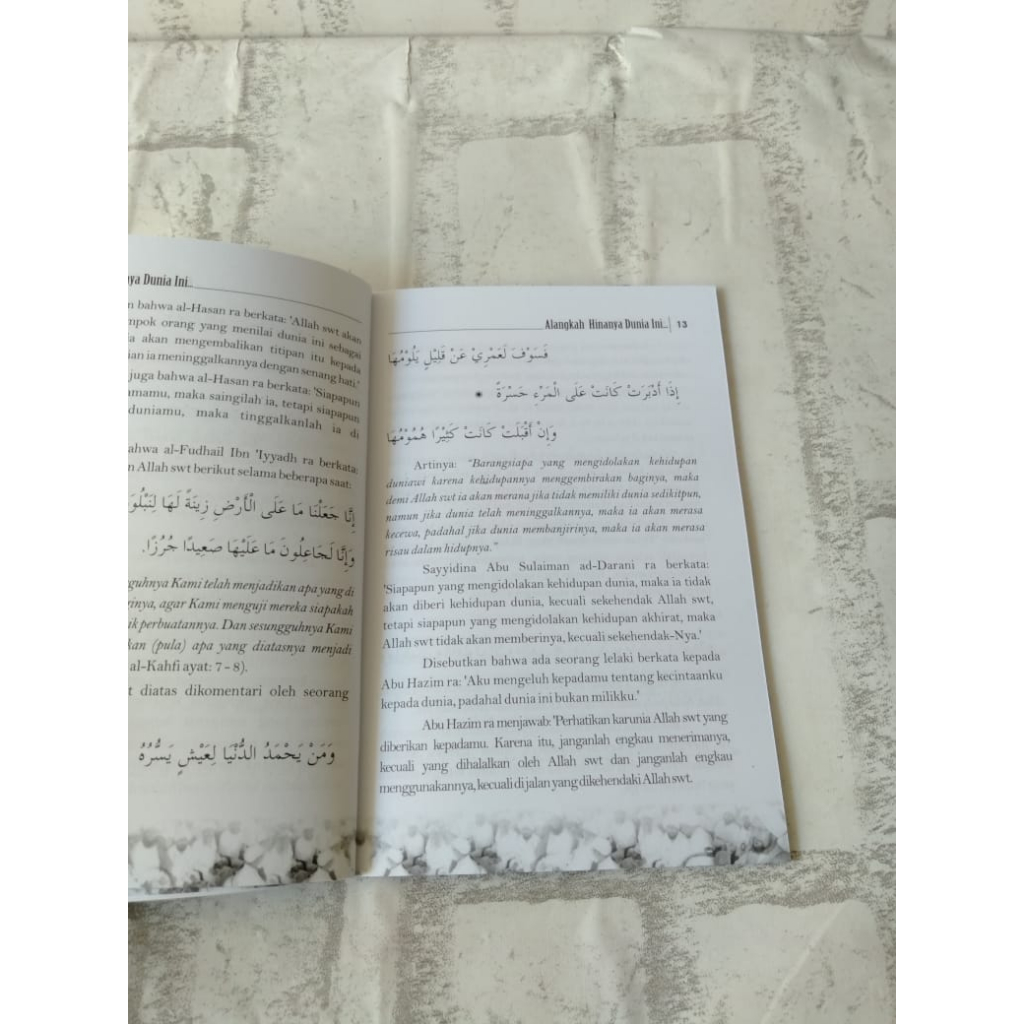 ya Dunia Ini..
bahwa al-Hasan ra berkata: 'Allah swt akan
orang yang menilai dunia ini sebagai
akan mengembalikan titipan itu kepada
ia meninggalkannya dengan senang hati.'
juga bahwa al-Hasan ra berkata: 'Siapapun
maka saingilah ia, tetapi siapapun
duniamu, maka tinggalkanlah ia di
al-Fudhail Ibn 'Iyyadh ra berkata:
Allah swt berikut selama beberapa saat:
إِنَّا جَعَلْنَا مَا عَلَى الْأَرْضِ زِينَةً لَهَا
وَإِنَّا لَجَاعِلُونَ مَا عَلَيْهَا صَعِيدًا جُرُزًا.
Kami telah menjadikan apa yang di
agar Kami menguji mereka siapakah
perbuatannya. Dan sesungguhnya Kami
(pula) apa yang diatasnya menjadi
al-Kahfi ayat: 7 - 8).
diatas dikomentari oleh seorang
وَمَنْ يَحْمَدُ الدُّنْيَا لِعَيْشٍ يَسُّرُهُ
Alangkah Hinanya Dunia Ini.. 13
فَسَوْفَ لَعَمْرِيْ عَنْ قَلِيْلٍ يَلُوْمُهَا
إِذَا أَدْبَرَتْ كَانَتْ عَلَى الْمَرْءِ حَسْرَةً *
وَإِنْ أَقْبَلَتْ كَانَتْ كَثِيْرًا هُمُوْمُهَا
Artinya: "Barangsiapa yang mengidolakan kehidupan
duniawi karena kehidupannya menggembirakan baginya, maka
demi Allah swt ia akan merana jika tidak memiliki dunia sedikitpun,
namun jika dunia telah meninggalkannya, maka ia akan merasa
kecewa, padahal jika dunia membanjirinya, maka ia akan merasa
risau dalam hidupnya."
Sayyidina Abu Sulaiman ad-Darani ra berkata:
'Siapapun yang mengidolakan kehidupan dunia, maka ia tidak
akan diberi kehidupan dunia, kecuali sekehendak Allah swt,
tetapi siapapun yang mengidolakan kehidupan akhirat, maka
Allah swt tidak akan memberinya, kecuali sekehendak-Nya.'
Disebutkan bahwa ada seorang lelaki berkata kepada
Abu Hazim ra: 'Aku mengeluh kepadamu tentang kecintaanku
kepada dunia, padahal dunia ini bukan milikku.'
Abu Hazim ra menjawab: 'Perhatikan karunia Allah swt yang
diberikan kepadamu. Karena itu, janganlah engkau menerimanya,
kecuali yang dihalalkan oleh Allah swt dan janganlah engkau
menggunakannya, kecuali di jalan yang dikehendaki Allah swt.